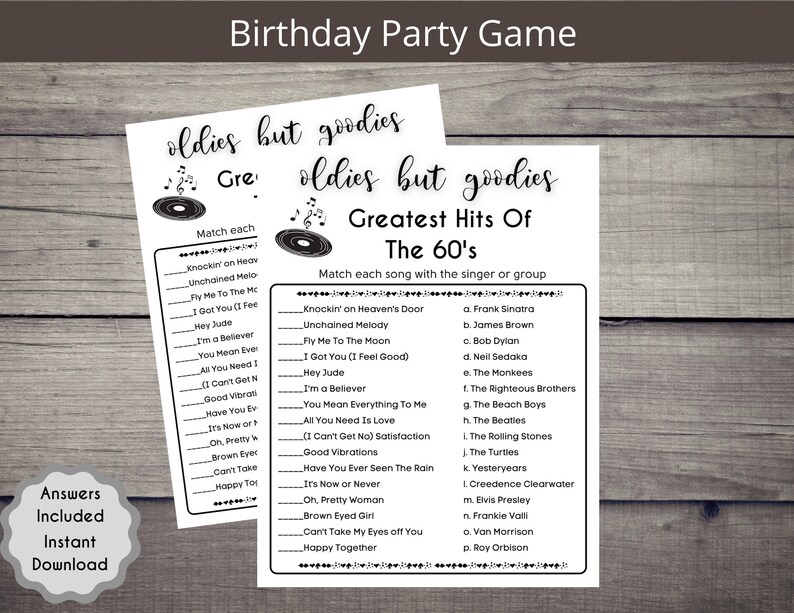 Birthday Party Game
oldies but goodies
Gre
Match each
_____Knockin' on Heav
_____Unchained Melo
_____Fly Me To The Mo
_____I Got You (I Fee
_____Hey Jude
_____I'm a Believer
_____You Mean Everyt
_____All You Need I
_____(I Can't Get N
_____Good Vibrati
_____Have You Ev
_____It's Now or N
_____Oh, Pretty W
_____Brown Eyed
_____Can't Take
_____Happy Tog
oldies but goodies
Greatest Hits Of
The 60's
Match each song with the singer or group
_____Knockin' on Heaven's Door a. Frank Sinatra
_____Unchained Melody b. James Brown
_____Fly Me To The Moon c. Bob Dylan
_____I Got You (I Feel Good) d. Neil Sedaka
_____Hey Jude e. The Monkees
_____I'm a Believer f. The Righteous Brothers
_____You Mean Everything To Me g. The Beach Boys
_____All You Need Is Love h. The Beatles
_____(I Can't Get No) Satisfaction i. The Rolling Stones
_____Good Vibrations j. The Turtles
_____Have You Ever Seen The Rain k. Yesteryears
_____It's Now or Never l. Creedence Clearwater
_____Oh, Pretty Woman m. Elvis Presley
_____Brown Eyed Girl n. Frankie Valli
_____Can't Take My Eyes off You o. Van Morrison
_____Happy Together p. Roy Orbison
Answers
Included
Instant
Download